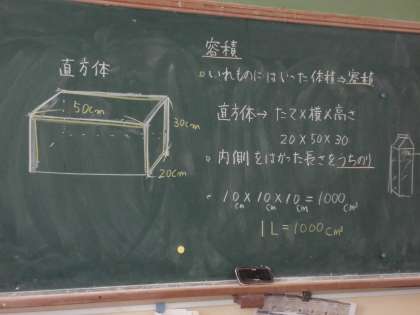 容積
直方体
50cm
30cm
20cm
○いれものにはいった体積⇒容積
直方体→たて×横×高さ
20×50×30
○内側をはかった長さをうちのり
○10cm×10cm×10cm=1000cm³
1L=1000cm³